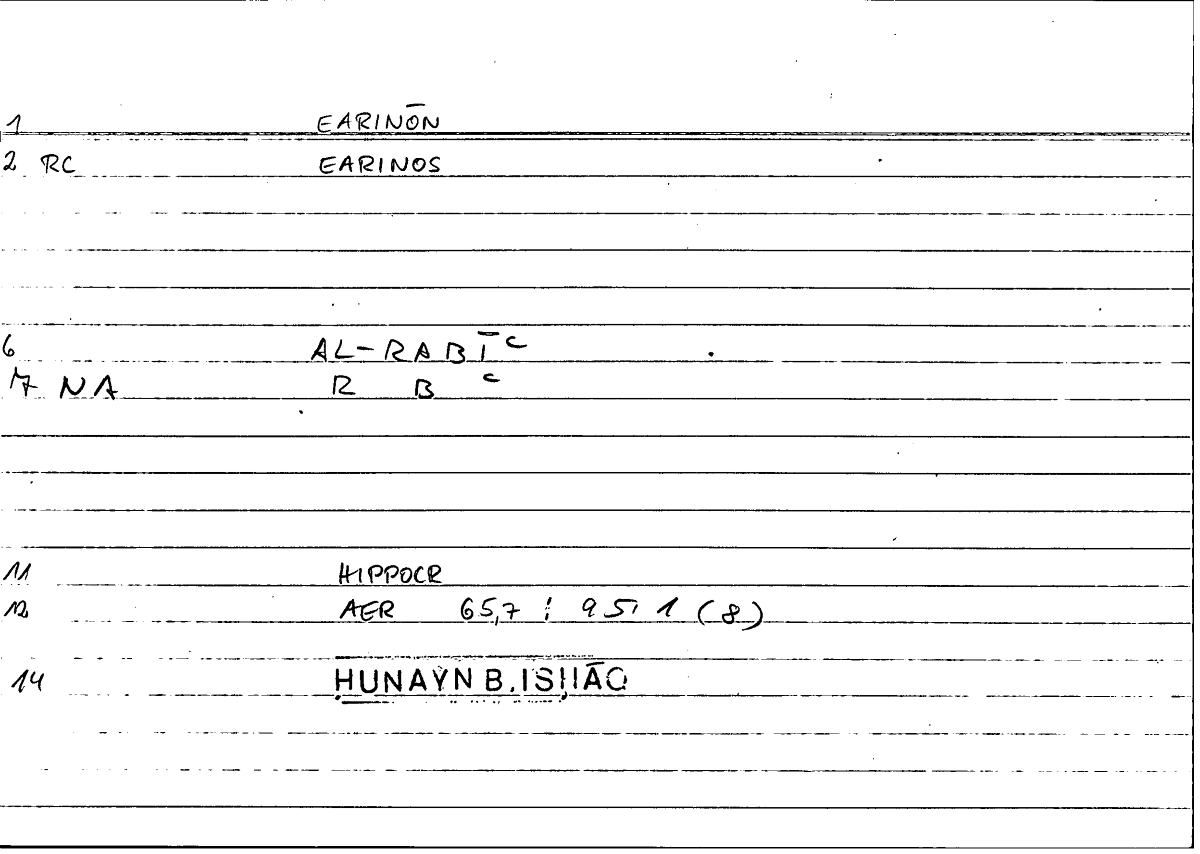 1 EARINŌN
2 RC EARINOS
6 AL-RABĪC
7 NA R B C
11 HIPPOCR
12 AER 65,7 : 95,1 (8)
14 ḤUNAYN B. ISḤĀQ